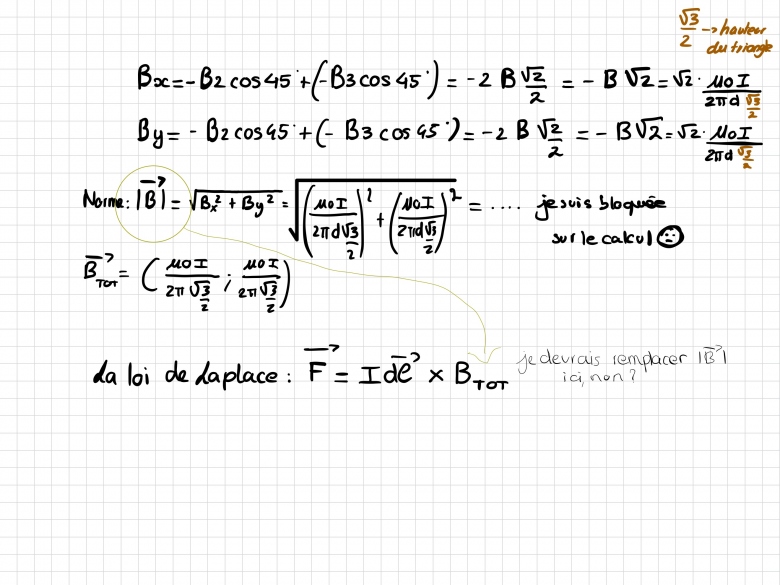 √3/2 → hauteur
du triangle
Bx = - B2 cos 45° + (- B3 cos 45°) = - 2 B √2/2 = - B √2 = √2 · μoI/(2πd √3/2)
By = - B2 cos 45° + (- B3 cos 45°) = - 2 B √2/2 = - B √2 = √2 · μoI/(2πd √3/2)
Norme : |B⃗| = √(Bx² + By²) = √((μoI/(2πd √3/2))² + (μoI/(2πd √3/2))²) = .... je suis bloquée
sur le calcul ☹
B⃗TOT = (μoI/(2π √3/2) ; μoI/(2π √3/2))
La loi de Laplace : F⃗ = I dℓ⃗ × BTOT
je devrais remplacer |B⃗|
ici, non ?